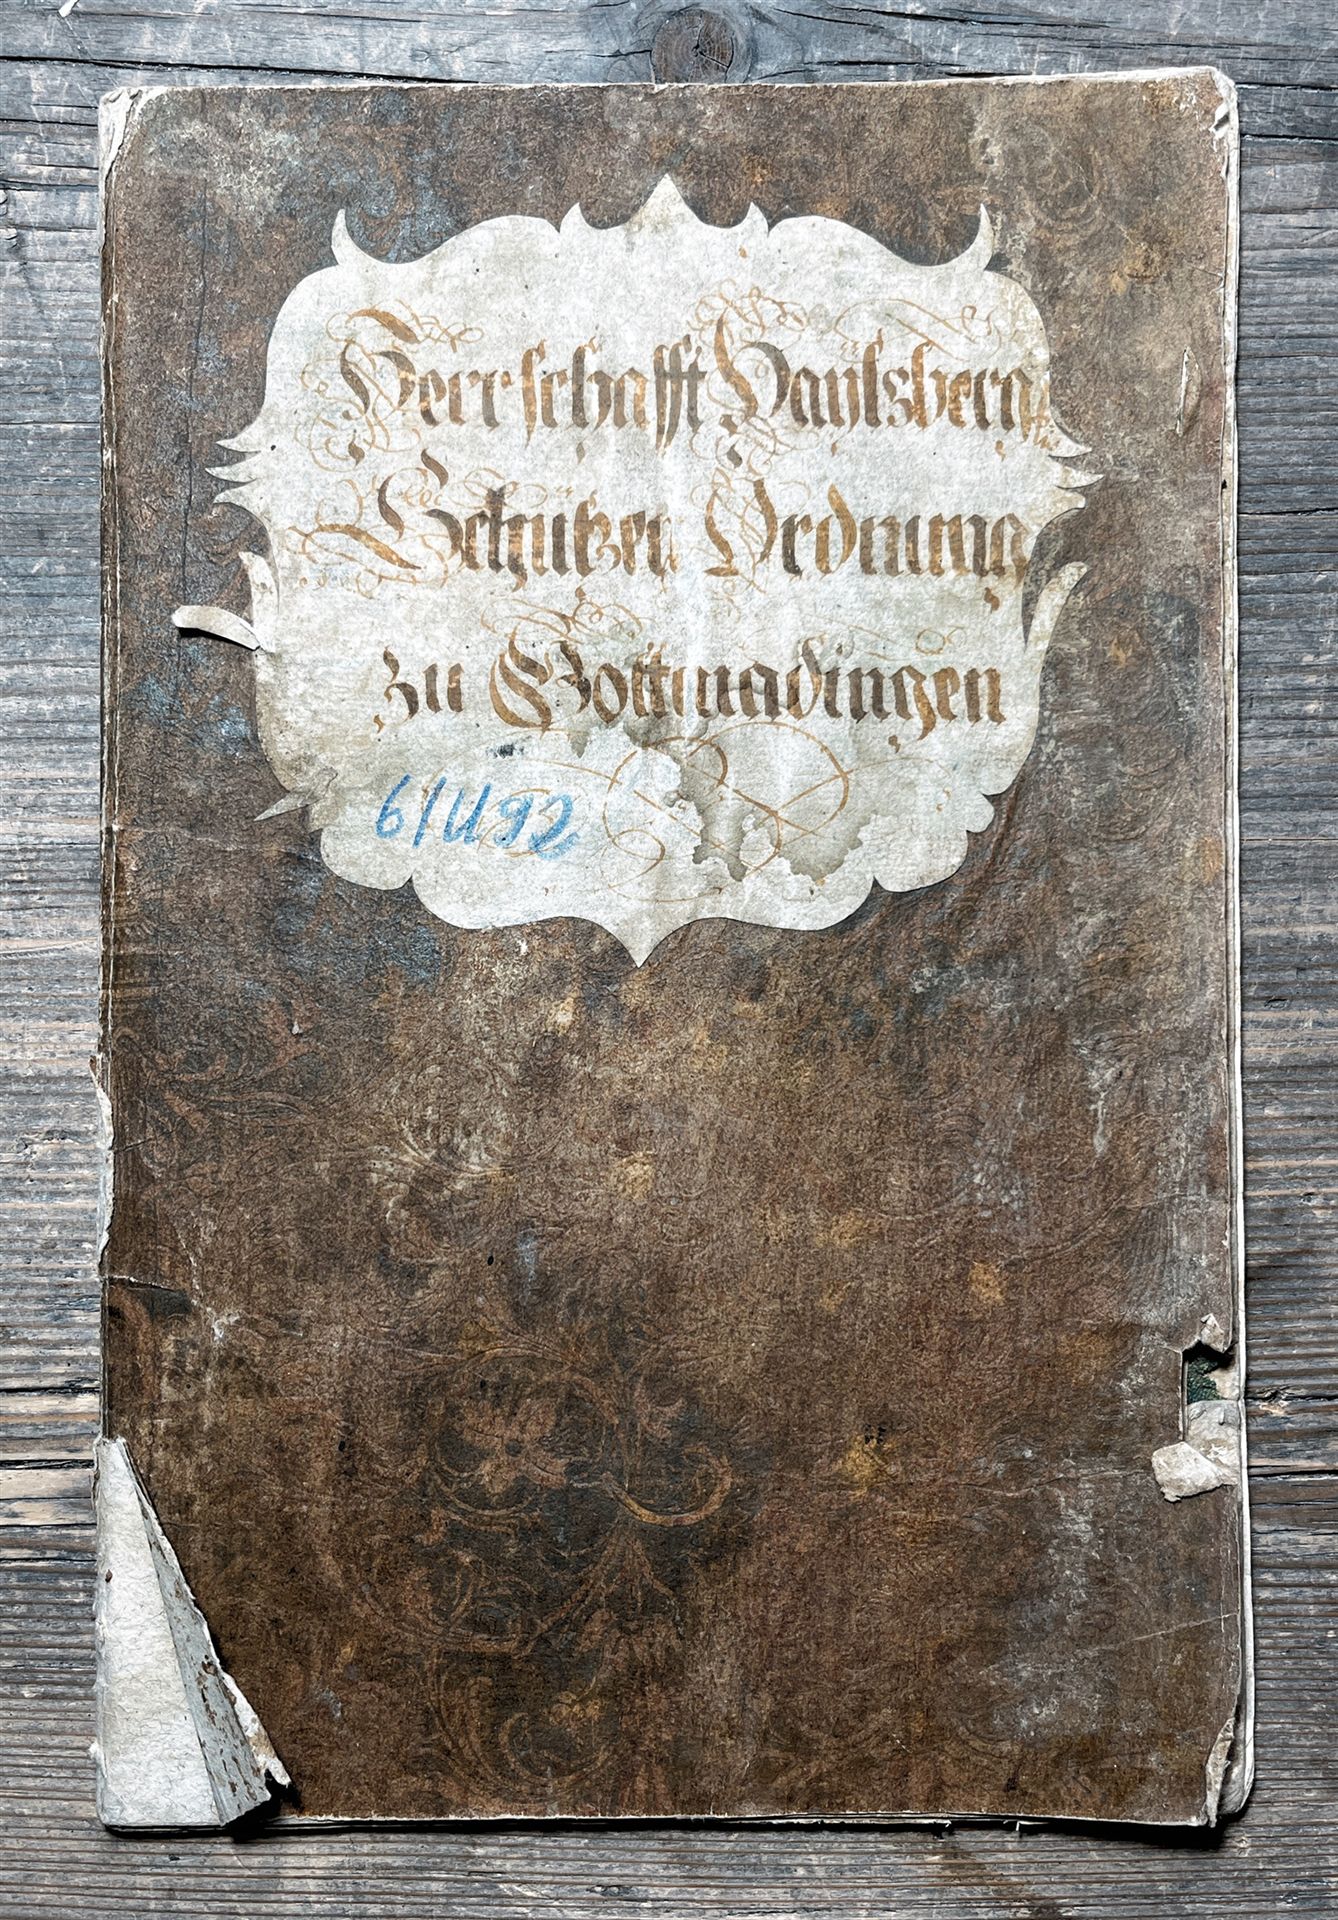 Herrschafft Haÿlsberg
Schützen Ordnung
zu Gottmadingen